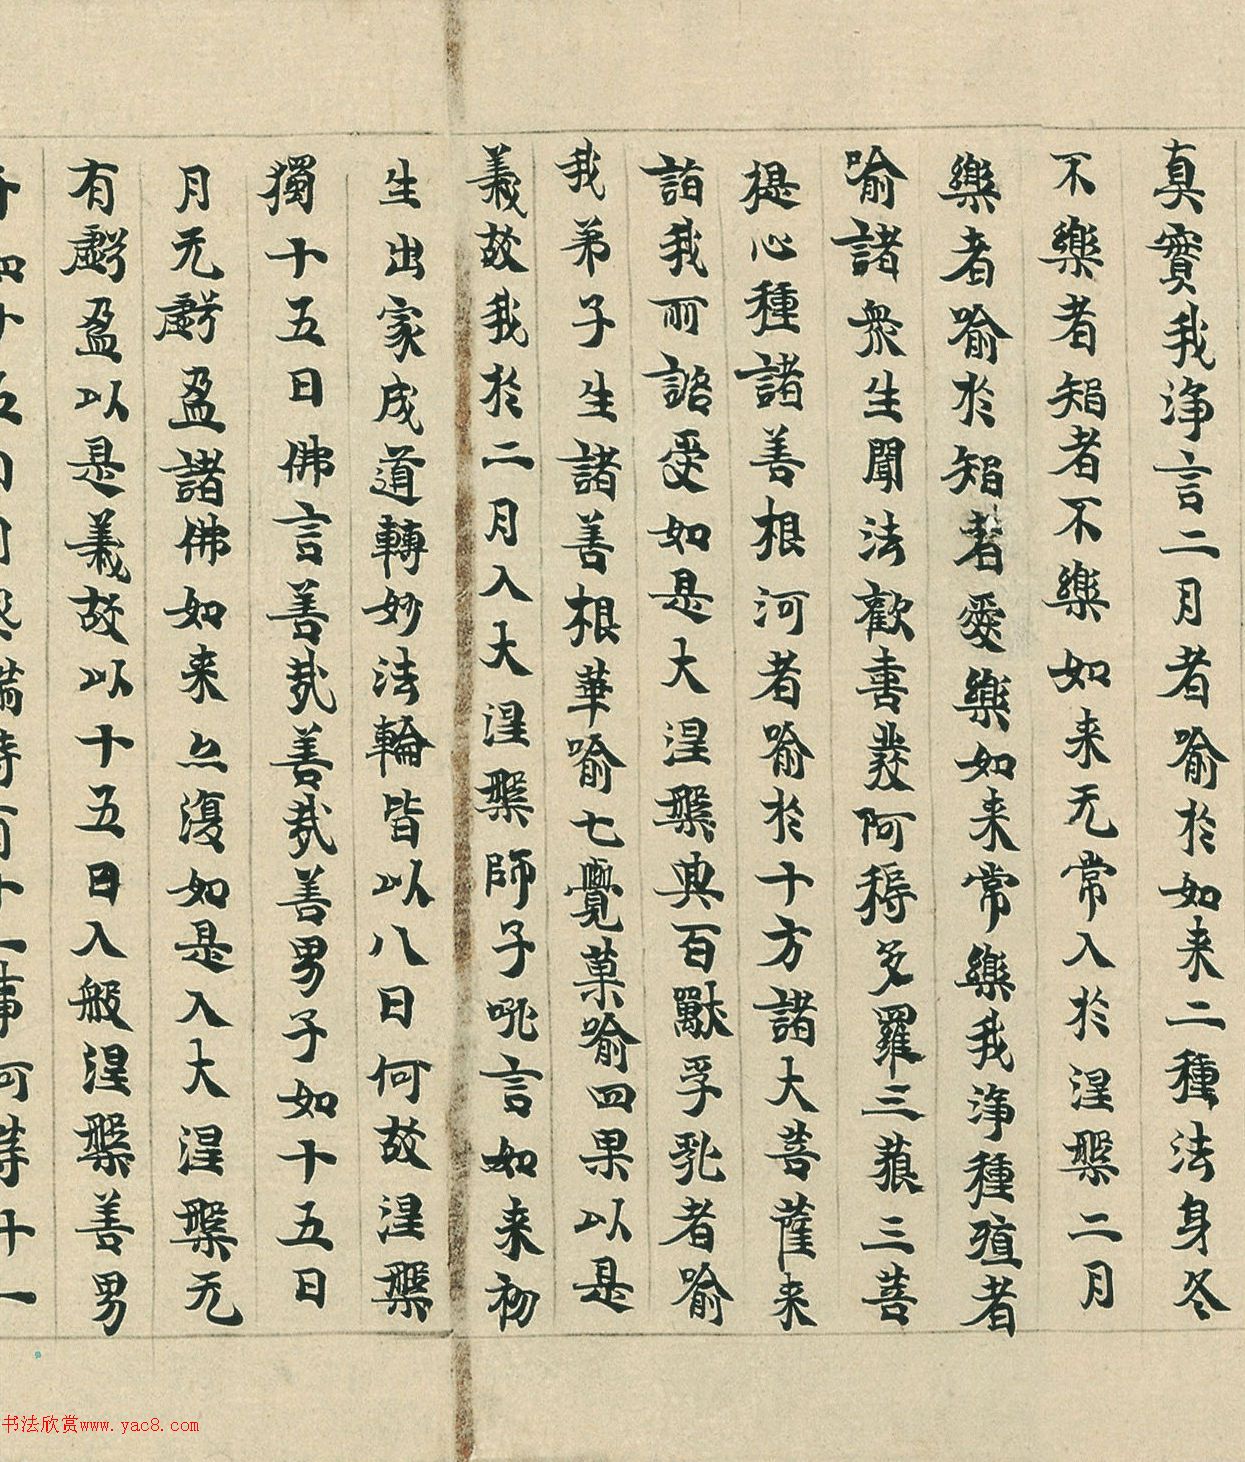 真實我淨言二月者喻於如来二種法身冬
不樂者智者不樂如来无常入於涅槃二月
樂者喻於智者愛樂如来常樂我淨種殖者
喻諸衆生聞法歡喜發阿耨多羅三藐三菩
提心種諸善根河者喻於十方諸大菩薩来
詣我所諮受如是大涅槃典百獸孚乳者喻
我弟子生諸善根華喻七覺菓喻四果以是
義故我於二月入大涅槃師子吼言如来初
生出家成道轉妙法輪皆以八日何故涅槃
獨十五日佛言善哉善哉善男子如十五日
月无虧盈諸佛如来亦復如是入大涅槃无
有虧盈以是義故以十五日入般涅槃善男
书法欣赏www.yac8.com